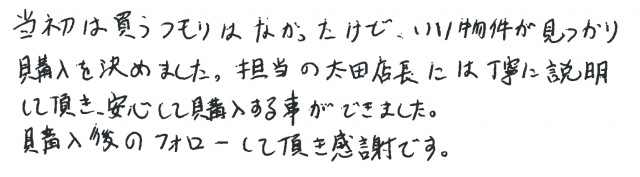 当初は買うつもりはなかったけど、いい物件が見つかり
購入を決めました。担当の太田店長には丁寧に説明
して頂き、安心して購入する事ができました。
購入後のフォローして頂き感謝です。